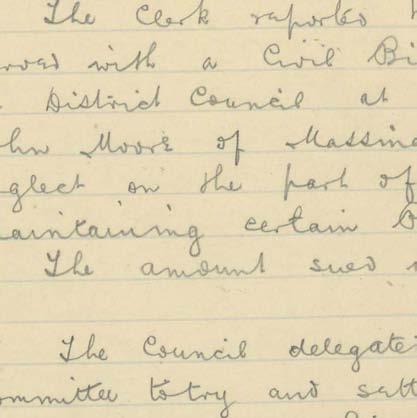 The Clerk reported
with a Civil Bi
District Council at
hn Moore of Massin
glect on the part of
aintaining certain
The amount sued
The Council delegate
ommittee to try and sett